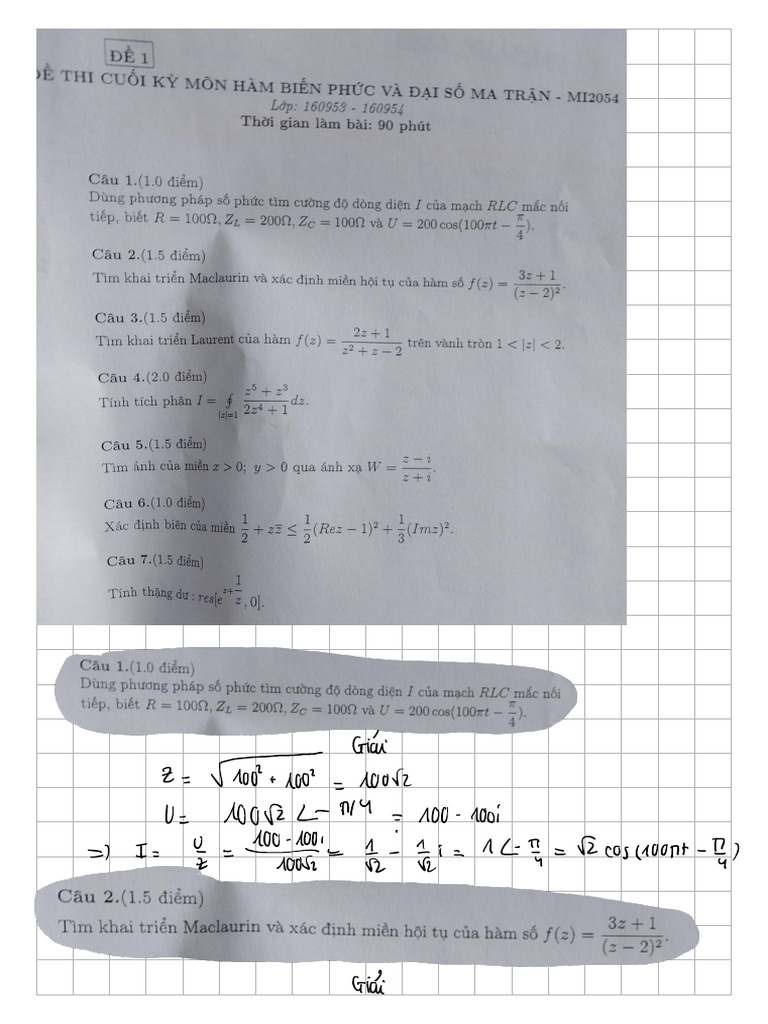 ĐỀ 1
ĐỀ THI CUỐI KỲ MÔN HÀM BIẾN PHỨC VÀ ĐẠI SỐ MA TRẬN - MI2054
Lớp: 160953 - 160954
Thời gian làm bài: 90 phút
Câu 1.(1.0 điểm)
Dùng phương pháp số phức tìm cường độ dòng diện I của mạch RLC mắc nối
tiếp, biết R = 100Ω, Z_L = 200Ω, Z_C = 100Ω và U = 200 cos(100πt − π/4).
Câu 2.(1.5 điểm)
Tìm khai triển Maclaurin và xác định miền hội tụ của hàm số f(z) = (3z + 1)/(z − 2)².
Câu 3.(1.5 điểm)
Tìm khai triển Laurent của hàm f(z) = (2z + 1)/(z² + z − 2) trên vành tròn 1 < |z| < 2.
Câu 4.(2.0 điểm)
Tính tích phân I = ∮_{|z|=1} (z⁵ + z³)/(2z⁴ + 1) dz.
Câu 5.(1.5 điểm)
Tìm ảnh của miền x > 0; y > 0 qua ánh xạ W = (z − i)/(z + i).
Câu 6.(1.0 điểm)
Xác định biên của miền 1/2 + zz̄ ≤ 1/2(Rez − 1)² + 1/3(Imz)².
Câu 7.(1.5 điểm)
Tính thặng dư : res[e^{z+1/z}, 0].
Câu 1.(1.0 điểm)
Dùng phương pháp số phức tìm cường độ dòng diện I của mạch RLC mắc nối
tiếp, biết R = 100Ω, Z_L = 200Ω, Z_C = 100Ω và U = 200 cos(100πt − π/4).
Giải
Z = √(100² + 100²) = 100√2
U = 100√2 ∠ − π/4 = 100 - 100i
=> I = U/Z = (100 - 100i)/(100√2) = 1/√2 - 1/√2 i = 1 ∠ - π/4 = √2 cos(100πt − π/4)
Câu 2.(1.5 điểm)
Tìm khai triển Maclaurin và xác định miền hội tụ của hàm số f(z) = (3z + 1)/(z − 2)².
Giải